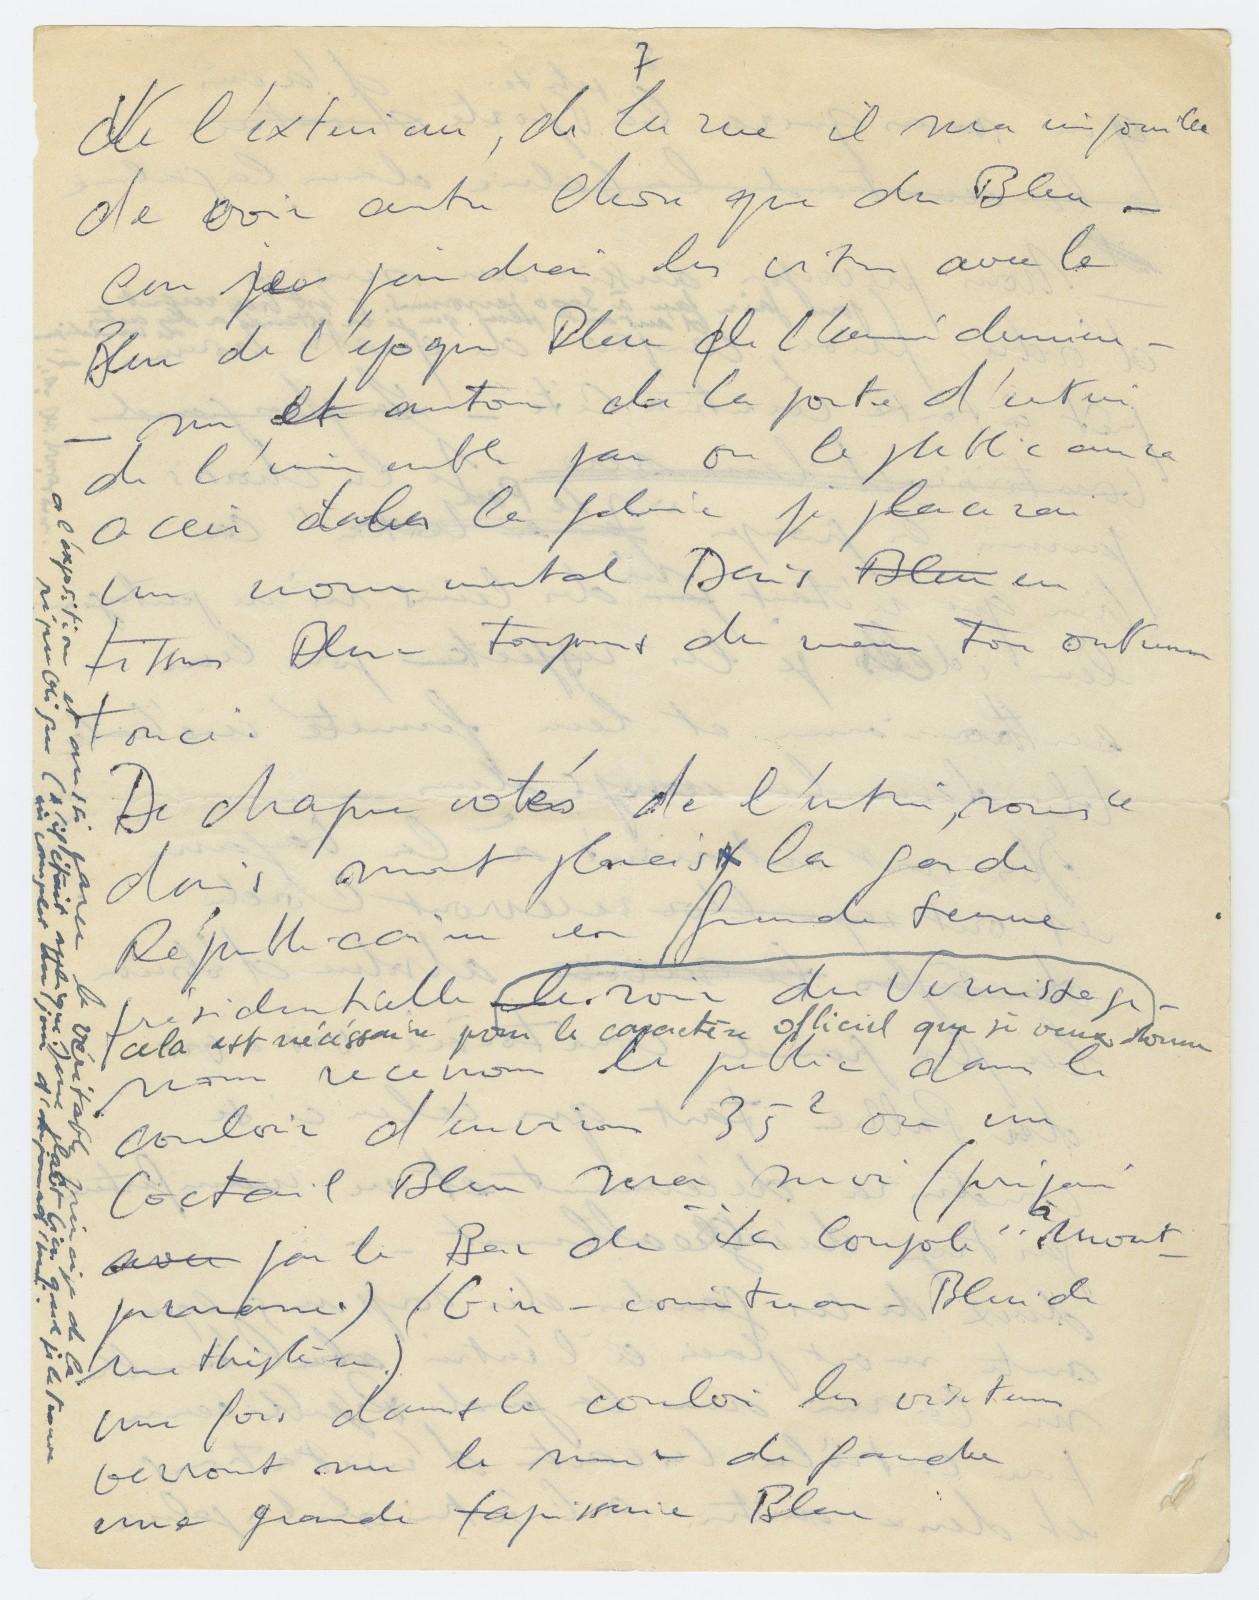 7
De l'extérieur, de la rue il sera impossible
de voir autre chose que du Bleu -
car je peindrai les vitres avec le
Bleu de l'époque Bleu de l'année dernière -
- sur et autour de la porte d'entrée
de l'immeuble par ou le public aura
accès dans la galerie je placerai
un monumental Dais Bleu en
tissus Bleu toujours du même ton outremer
foncé.
De chaque cotés de l'entrée, sous ce
dais sont placés la garde
Républicaine en grande tenue
présidentielle le soir du Vernissage -
cela est nécéssaire pour le caractère officiel que je veux donner
à l'expsition et aussi parce le véritable principe de la
république (s'il était appliqué, me plaît bien que je le trouve
incomplet aujourd'hui.
nous recevrons le public dans le
couloir d'environ 35² ou un
Coctail Bleu sera servi (préparé
avec par le Bar de "La Coupole" à Mont-
parnasse.) (Gin - cointreau - Bleu de
methylène)
une fois dans le couloir les visiteurs
verront sur le mur de gauche
une grande tapisserie Bleu